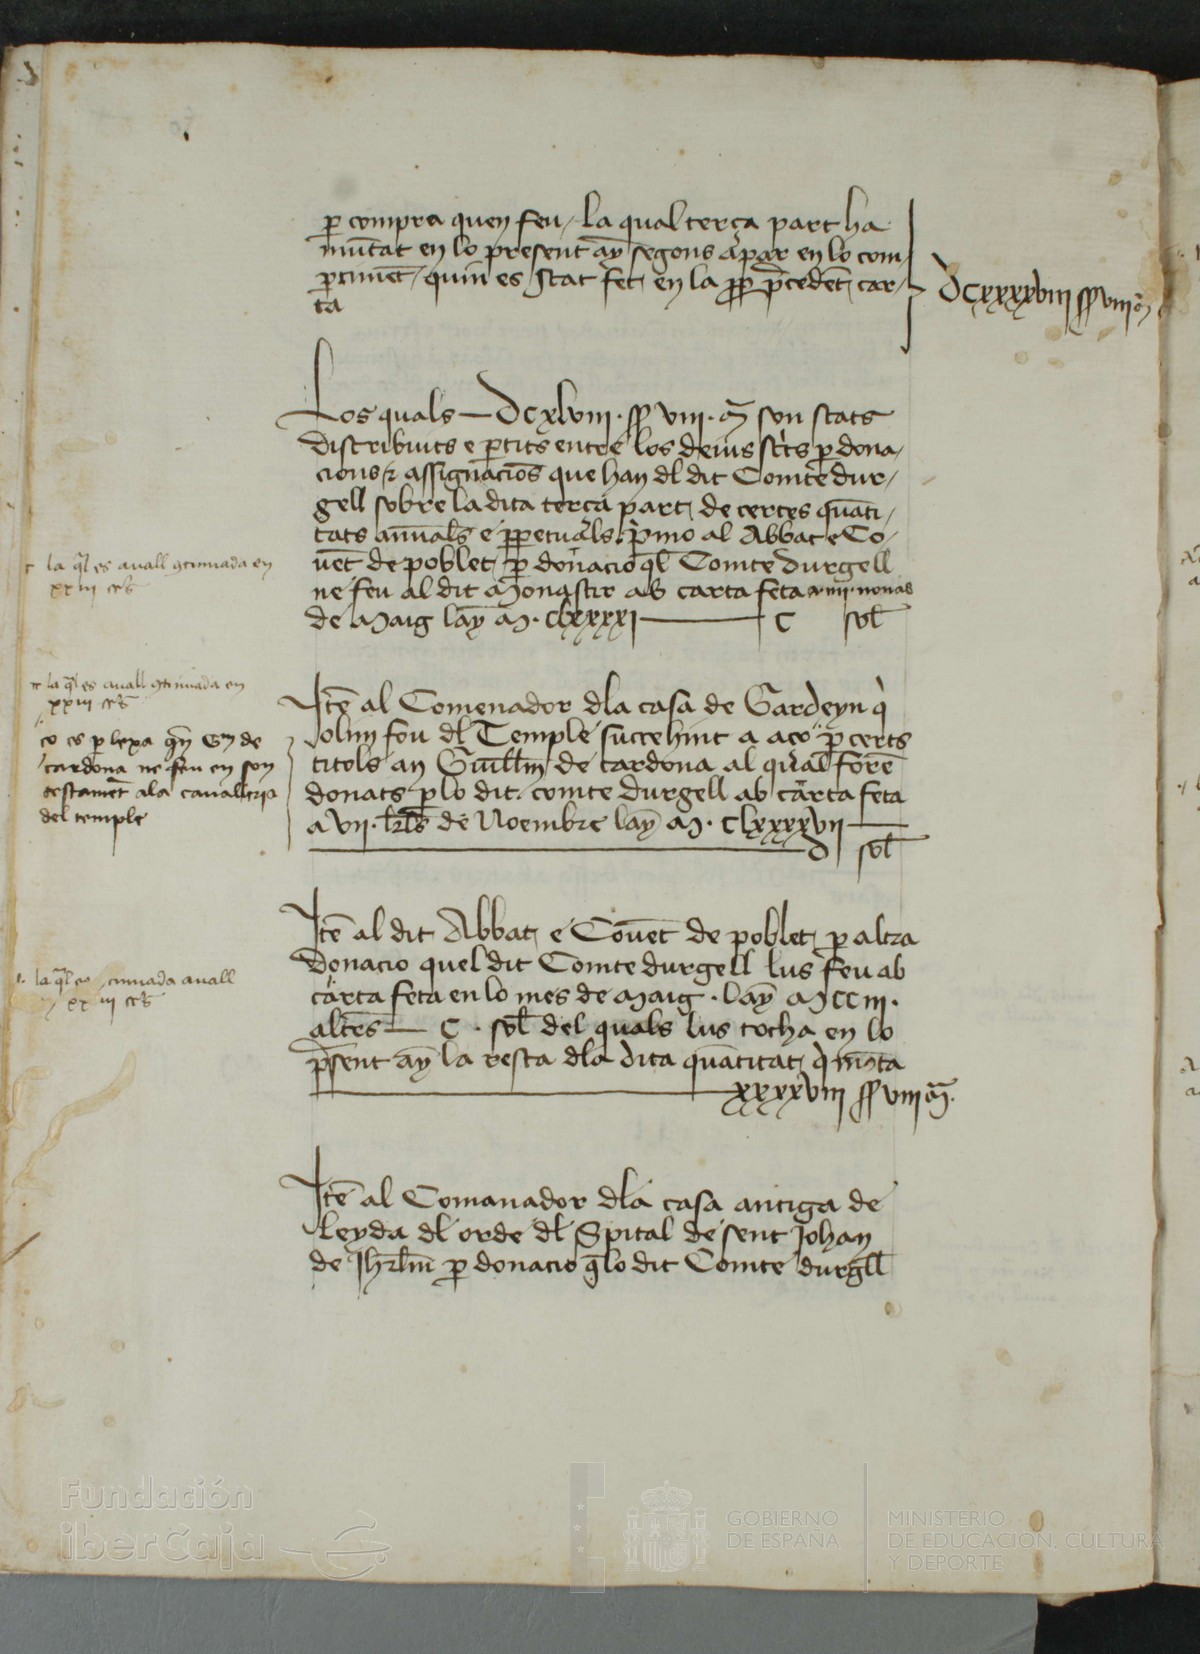 per compra quen feu / la qual terça part ha
muntat en lo present any segons apar en lo com
partiment / quin es stat fet en la prop precedent car-
ta
DCXXXXVIII ss VIIII drs
Los quals — DCXLVIII · ss VIII · drs son stats
distribuits e partits entre los deius scrits per dona-
cions e assignacions que han del dit Comte dur-
gell sobre la dita terça part de certes quanti-
tats annuals e perpetuals. primo al Abbat e Co-
vent de poblet per donacio quel Comte durgell
ne feu al dit Monastir ab carta feta a IIII nonas
de Maig lany M · CLXXXXI — C sol
la qual es avall continuada en
XXIII cartes
Item al Comenador dela casa de Gardeyn qui
olim fou del Temple succehint a aço per certs
titols an Guillem de cardona al qual foren
donats per lo dit comte durgell ab carta feta
a VII · kalendas de Noembre lany M · CLXXXXVII —
D sol
la qual es avall continuada en
XXIII cartes
ço es per lexa quen Gm de
cardona ne feu en son
testament ala cavalleria
del temple
Item al dit Abbat e Covent de poblet per altra
donacio quel dit Comte durgell lus feu ab
carta feta en lo mes de Maig · lany MCCIII ·
altres — C · sol del quals lus tocha en lo
present any la resta dela dita quantitat qui munta
— XXXXVIII ss VIII drs ·
la qual es continuada avall
XXIII cartes
Item al Comanador dela casa antiga de
Leyda del orde del Spital de sent Johan
de Jhrlm per donacio quelo dit Comte durgell
Fundación
iberCaja
GOBIERNO
DE ESPAÑA
MINISTERIO
DE EDUCACIÓN, CULTURA
Y DEPORTE